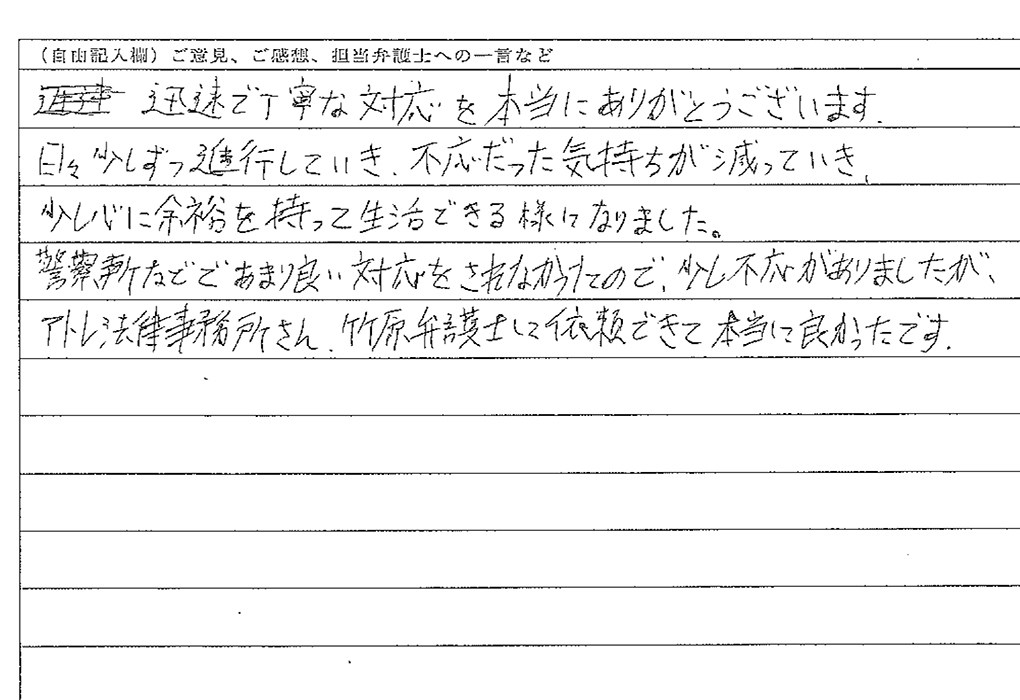 （自由記入欄）ご意見、ご感想、担当弁護士への一言など
迅速で丁寧な対応を本当にありがとうございます.
日々少しずつ進行していき、不応だった気持ちが減っていき、
少し心に余裕を持って生活できる様になりました。
警察斬などであまり良い対応をされなかったので、少し不応がありましたが、
アトム法律事務所さん、竹原弁護士して依頼できて本当に良かったです.